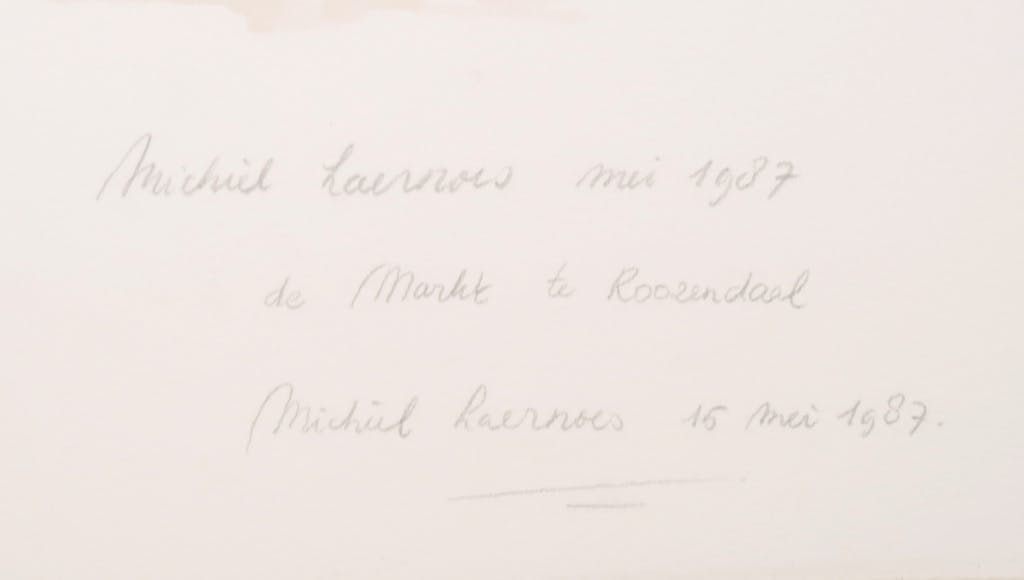 Michiel Laernoes mei 1987
de Markt te Roozendaal
Michiel Laernoes 15 mei 1987.